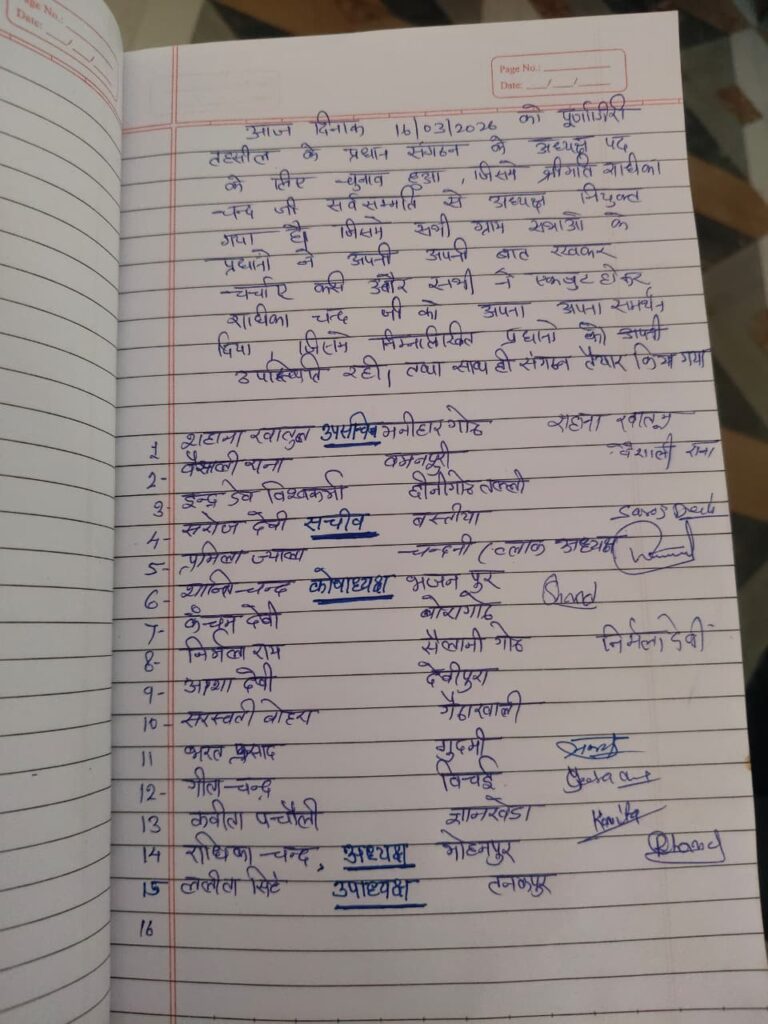 Page No.:
Date:
Page No.:
Date:
आज दिनाक 16/03/2026 को पूर्णागिरी
तहसील के प्रधान संगठन के अध्यक्ष पद
के लिए चुनाव हुआ, जिसमे श्रीमति राधिका
चन्द जी सर्वसम्मति से अध्यक्ष नियुक्त
गया है। जिसमे सभी ग्राम सभाओ के
प्रधानो ने अपनी अपनी बात रखकर
चर्चाए करी और सभी ने एकजुट होकर
राधिका चन्द जी को अपना अपना समर्थन
दिया, जिसमे निम्नलिखित प्रधानो की अपनी
उपस्थिति रही। तथा साथ ही संगठन तैयार किया गया
1 शहाना खातुन उपसचिव मनीहार गोठ शहाना खातून
2- वैशाली राना बमनपुरी वैशाली राना
3- इन्द्र देव विश्वकर्मा छीनीगोठ
4- सरोज देवी सचीव बस्तीया Saroj Devi
5- प्रमिला चन्दनी (ब्लाक अध्यक्ष
6- शान्ति चन्द कोषाध्यक्ष भजन पुर
7- कंचन देवी बोरागोठ
8- निर्मला राम सैलानी गोठ निर्मला देवी
9- आशा देवी देवीपुरा
10- सरस्वती बोहरा गैडाखाली
11 भरत प्रसाद गुदमी
12- गीता चन्द विचई
13 कवीता पचौली ज्ञानखेडा Kavita
14 राधिका चन्द, अध्यक्ष मोहनपुर
15 ललीता सिंह उपाध्यक्ष तनकपुर
16